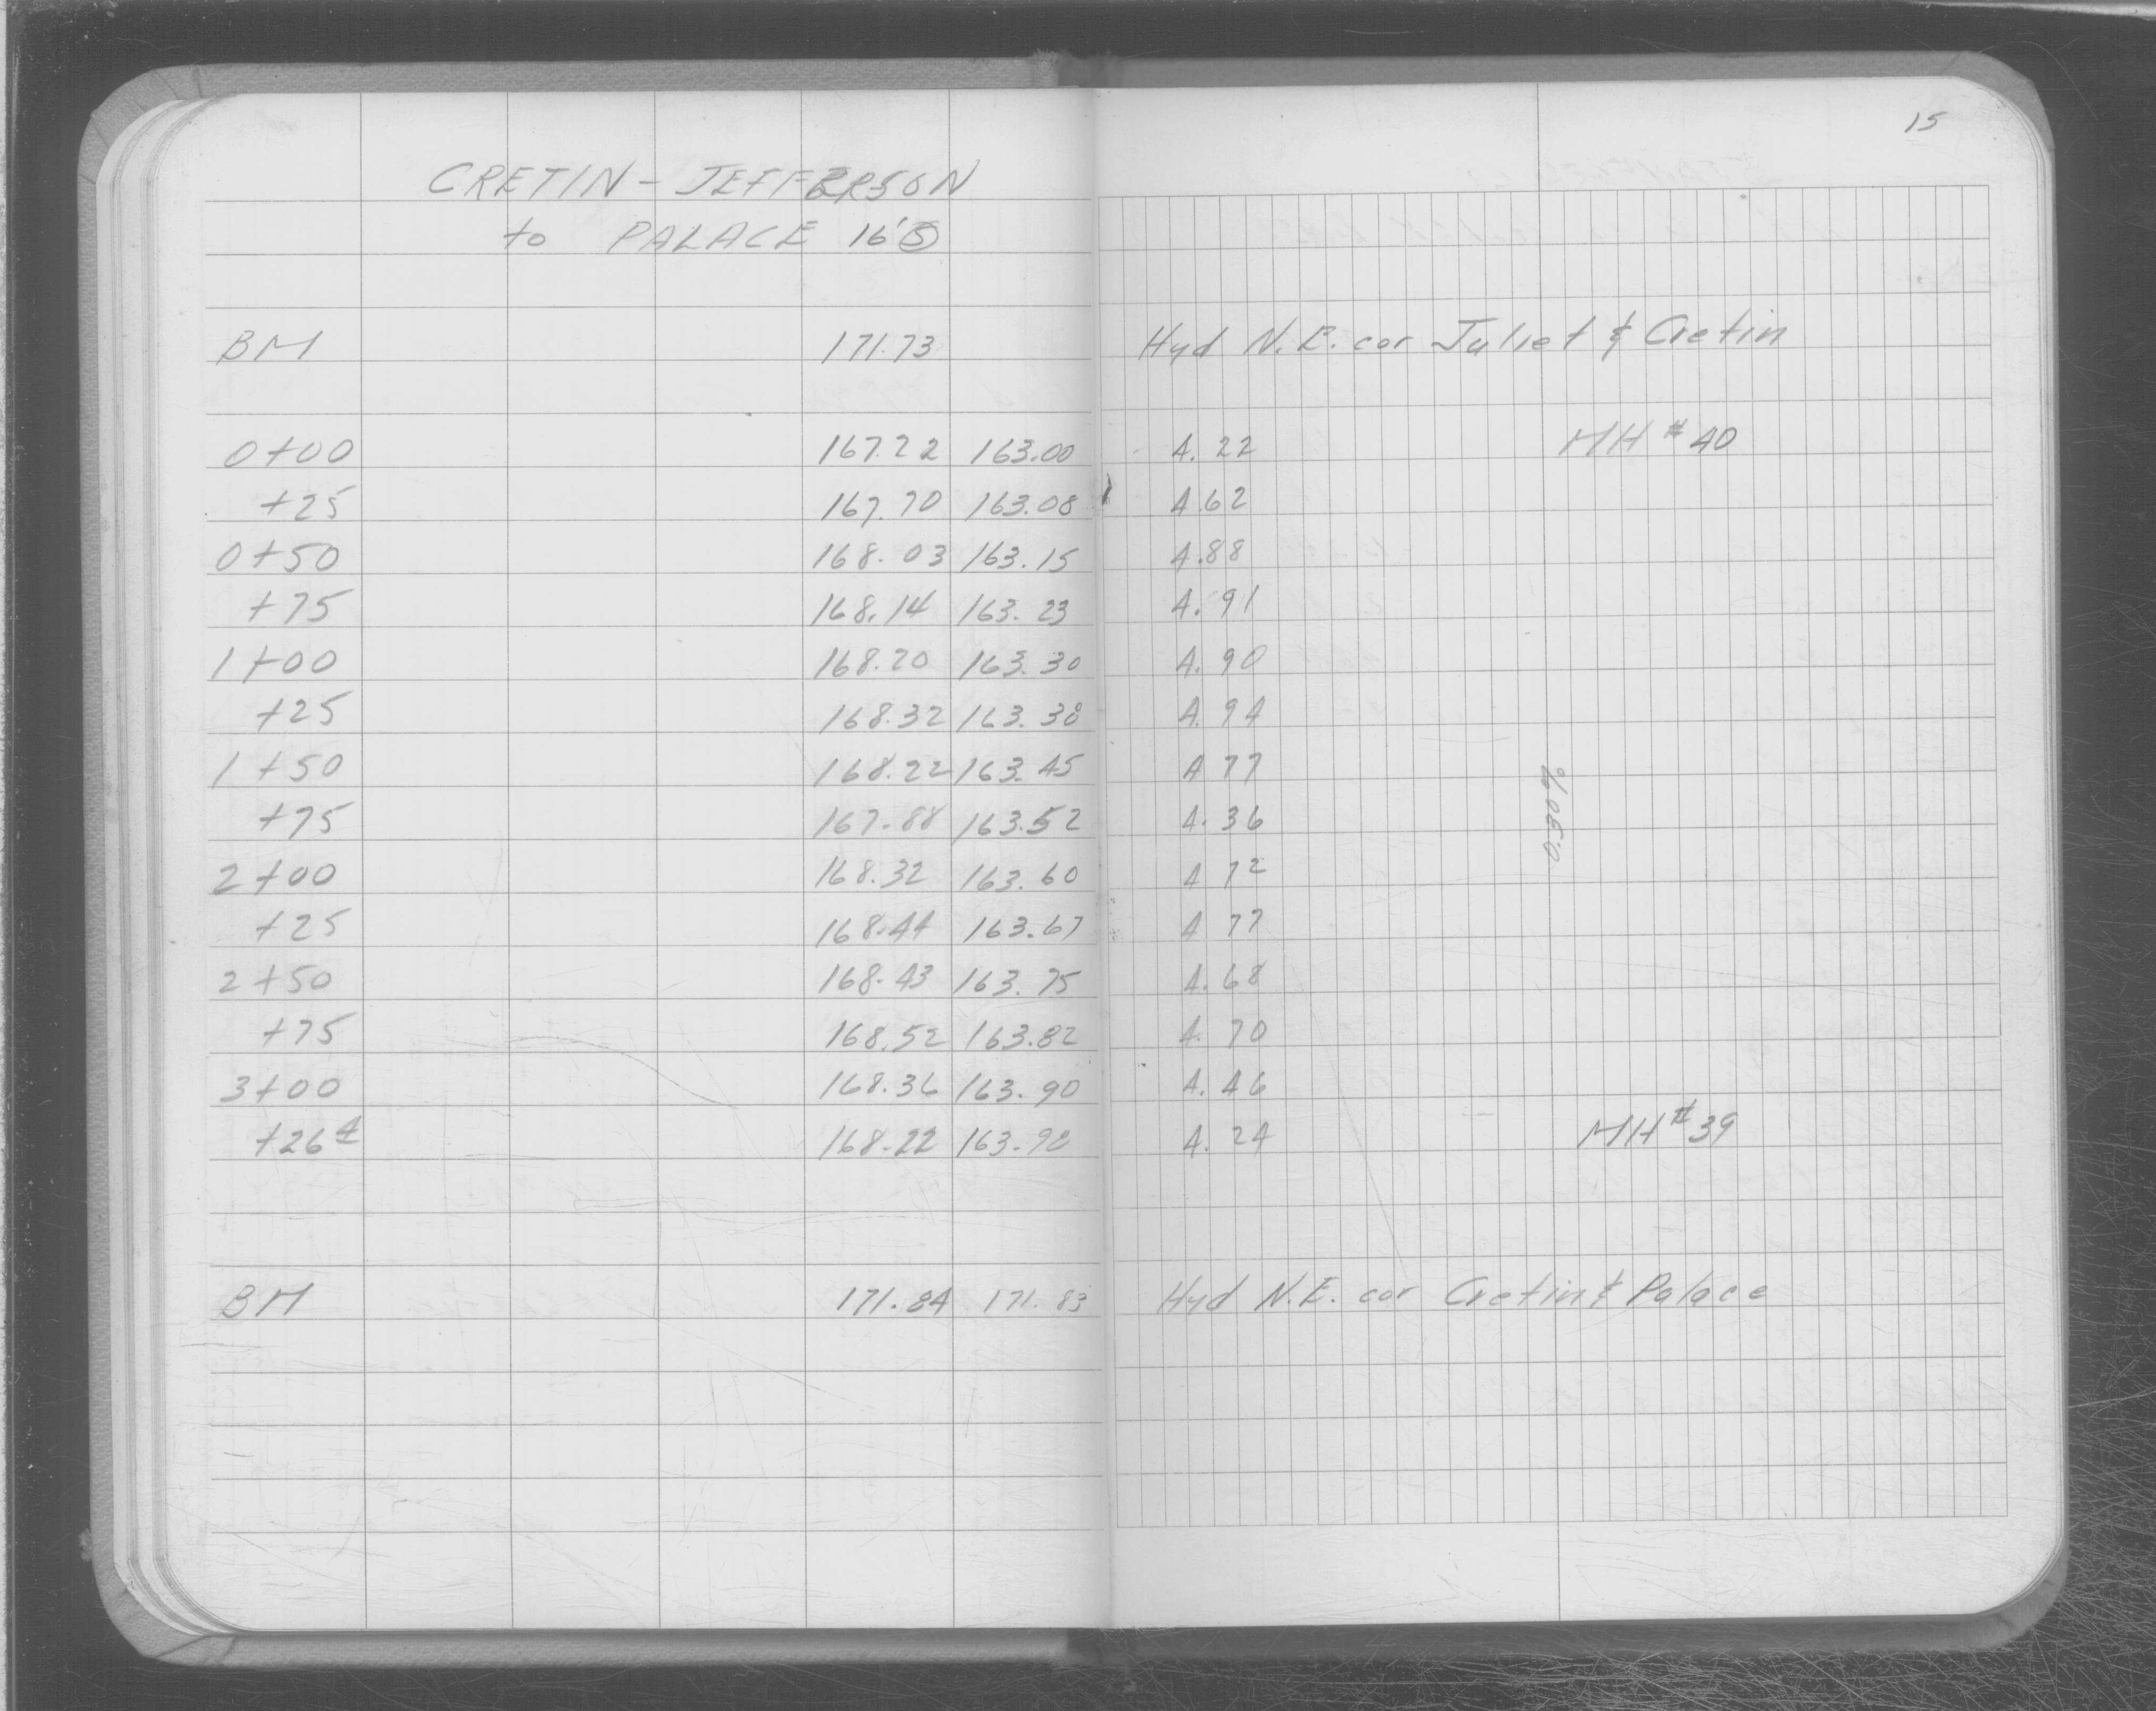 15
CRETIN - JEFFERSON
to PALACE 16' Ⓢ
BM 171.73 Hyd N.E. cor Juliet & Cretin
0+00 167.22 163.00 4.22 MH #40
+25 167.70 163.08 4.62
0+50 168.03 163.15 4.88
+75 168.14 163.23 4.91
1+00 168.20 163.30 4.90
+25 168.32 163.38 4.94
1+50 168.22 163.45 4 77
+75 167.88 163.52 4.36
2+00 168.32 163.60 4 72
+25 168.44 163.67 4 77
2+50 168.43 163.75 4.68
+75 168.52 163.82 4.70
3+00 168.36 163.90 4.46
+26 4 168.22 163.98 4.24 MH #39
0.30%
BM 171.84 171.83 Hyd N.E. cor Cretin & Palace